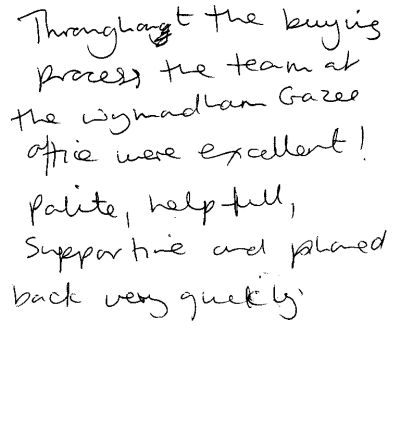 Throughout the buying
process, the team at
the wymondham Gazee
office were excellent!
Polite, helpfull,
Supportive and phoned
back very quickly.